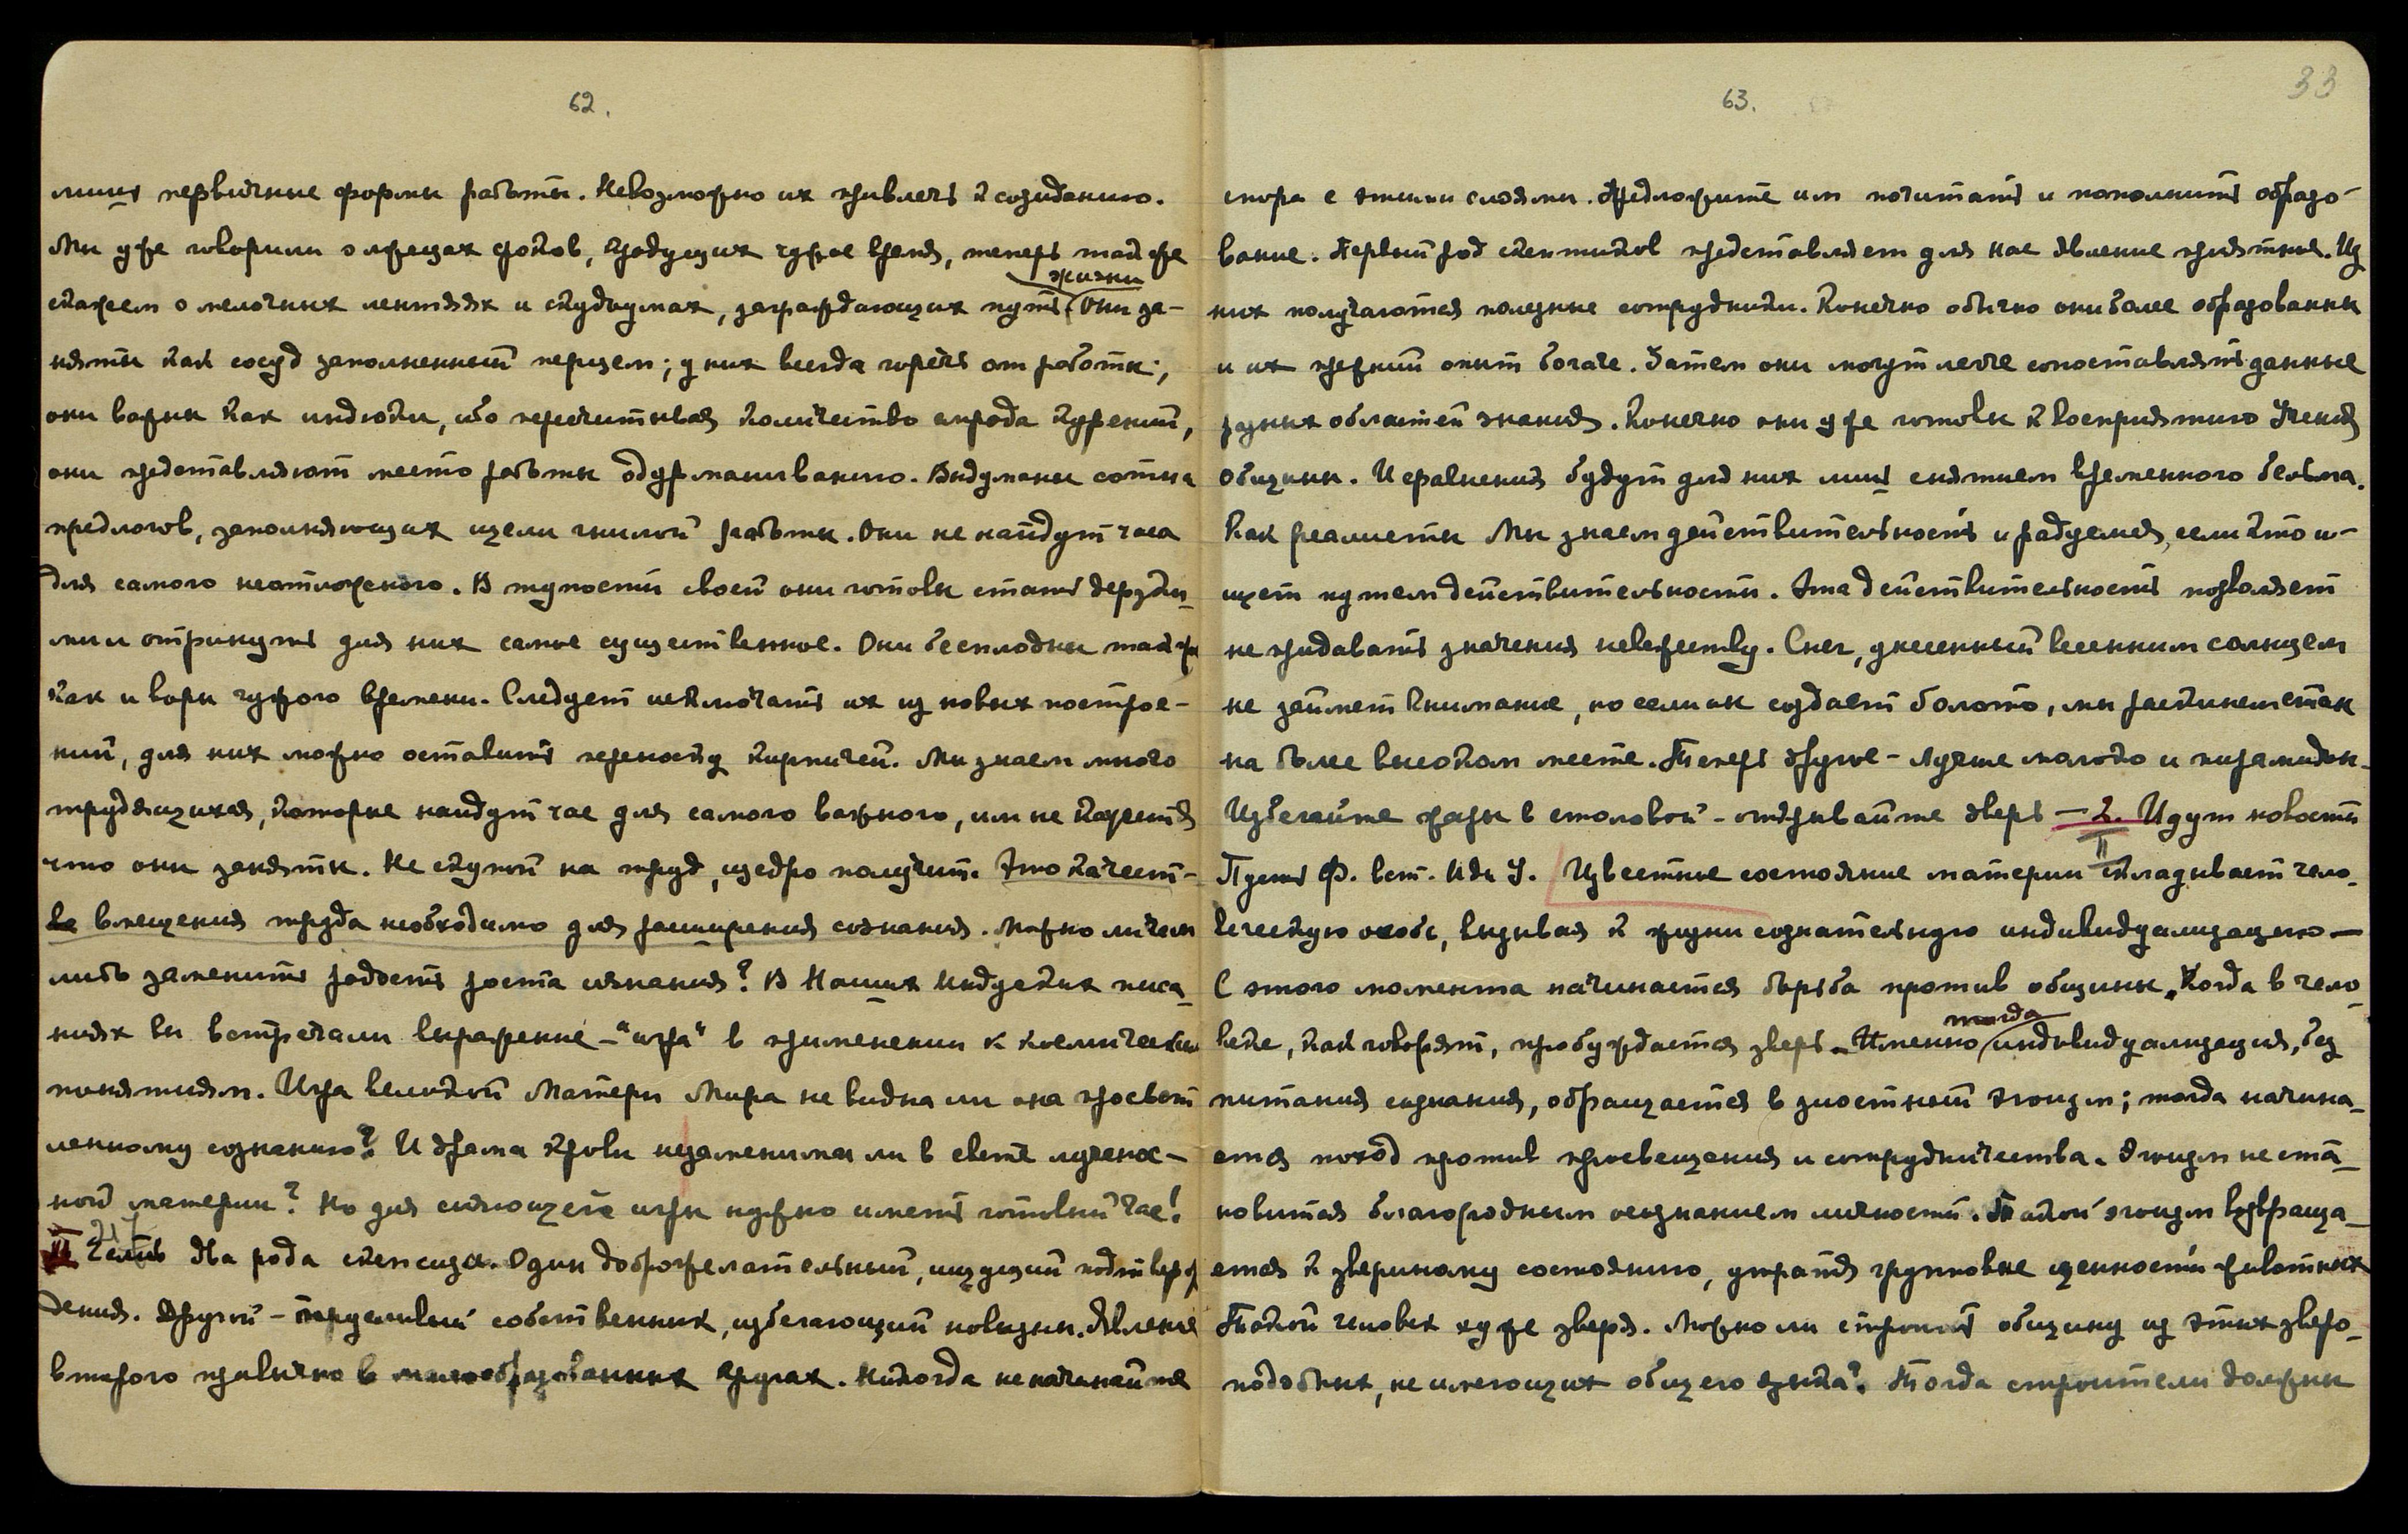 62.
лишь первичные формы работы. Невозможно их привлечь к созиданию.
Мы уже говорили о лжецах сроков, крадущих чужое время, теперь также
жизни
скажем о мелочных лентяях и скудоумах, заграждающих путь. Они за-
няты как сосуд заполненный перцем; у них всегда горечь от работы;
они важны как индюки, ибо пересчитывая количество смрада курений,
они представляют место работы одурманиванию. Выдуманы сотни
предлогов, заполняющих щели гнилой работы. Они не найдут часа
для самого неотложного. В тупости своей они готовы стать дерзки-
ми и отринуть для них самое существенное. Они бесплодны так же
как и воры чужого времени. Следует исключать их из новых построе-
ний, для них можно оставить переноску кирпичей. Мы знаем много
трудящихся, которые найдут час для самого важного, им не кажется
что они заняты. Не скупой на труд, щедро получит. Это качест-
во вмещения труда необходимо для расширения сознания. Можно ли чем
либо заменить радость роста сознания? В Наших Индусских писа-
ниях вы встречали выражение - "игра" в применении к космическим
понятиям. Игра великой Матери Мира не видна ли она просвет-
ленному сознанию? И драма крови незаменима ли в свете лученос-
ной материи? Но для сияющей игры нужно иметь готовый час!
II Есть два рода скепсиса. Один доброжелательный, ищущий подтверж-
дения. Другой - трусливый собственник, избегающий новизны. Явление
второго прилично в малообразованных кругах. Никогда не начинайте
63.
33
спора с этими слоями. Предложите им почитать и пополнить образо-
вание. Первый род скептиков представляет для нас явление приятное. Из
них получаются полезные сотрудники. Конечно обычно они более образованны
и их прежний опыт богаче. Затем они могут легче сопоставлять данные
разных областей знания. Конечно они уже готовы к восприятию Учения
Общины. И сравнения будут для них лишь снятием временного бельма.
Как реалисты Мы знаем действительность и радуемся, если кто и-
щет путем действительности. Эта действительность позволяет
не придавать значения невежеству. Снег, унесенный весенним солнцем
не займет внимание, но если он создает болото, мы раскинем стан
на более высоком месте. Теперь другое - лучше молоко и пирамидон.
Избегайте жары в столовой - открывайте дверь — 2. Идут новости
Пусть Ф. вст. Иды У. Известное состояние материи складывает чело-
II
веческую особь, вызывая к жизни сознательную индивидуализацию —
С этого момента начинается борьба против общины. Когда в чело-
тогда
веке, как говорят, пробуждается зверь. Именно индивидуализация, без
питания сознания, обращается в злостный эгоизм; тогда начина-
ется поход против просвещения и сотрудничества. Эгоизм не ста-
новится благородным осознанием личности. Такой эгоизм возвраща-
ется к звериному состоянию, утратя групповые ценности животных
Такой человек хуже зверя. Можно ли строить общину из этих зверо-
подобных, не имеющих общего языка? Тогда строители должны